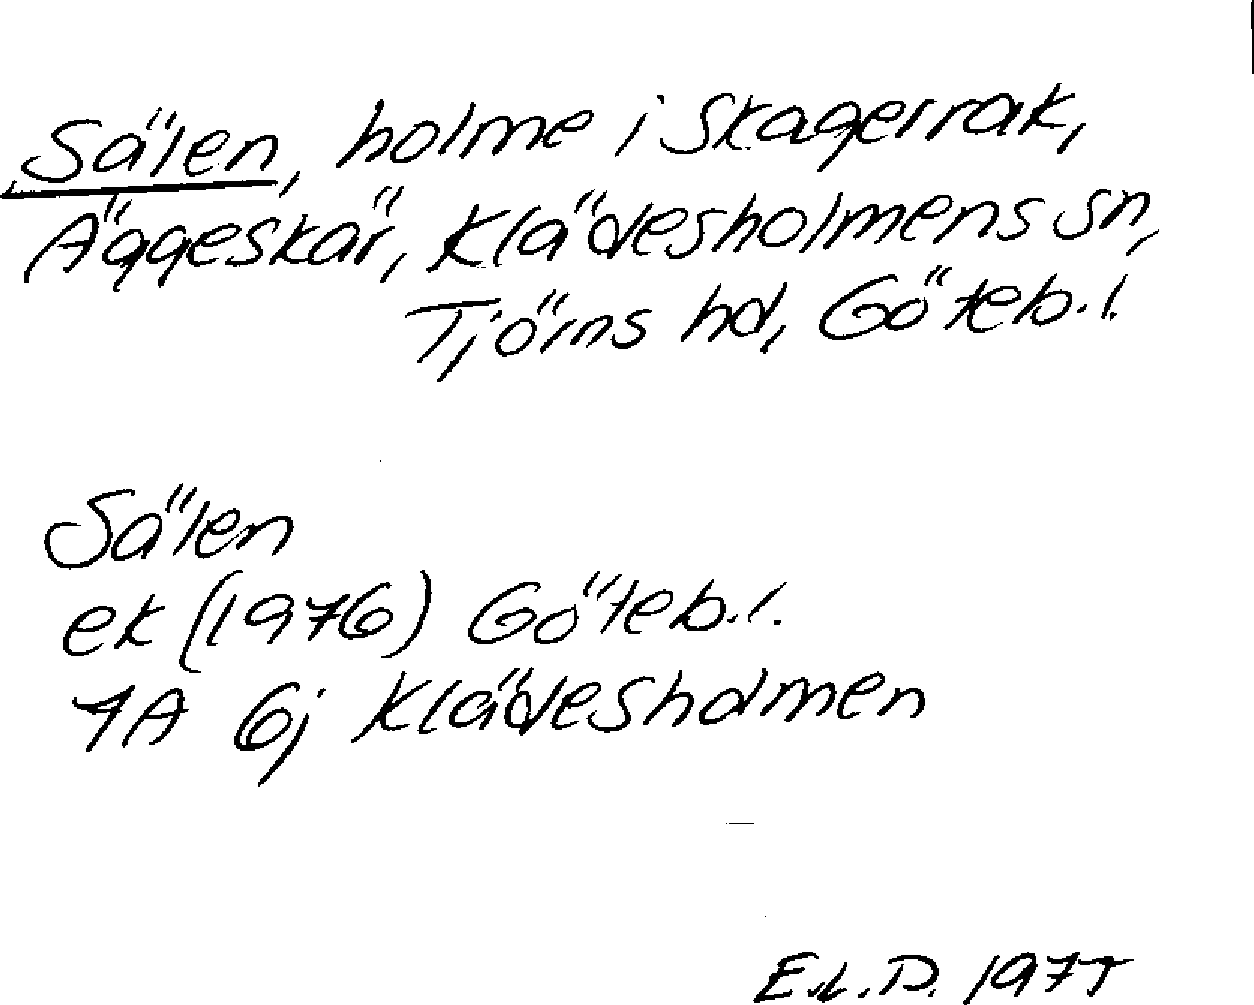 Sälen, holme i Skagerrak,
Äggeskär, Klädesholmens sn,
Tjörns hd, Göteb.l.
Sälen
ek (1976) Göteb.l.
7A 6j Klädesholmen
E.L.D. 1977